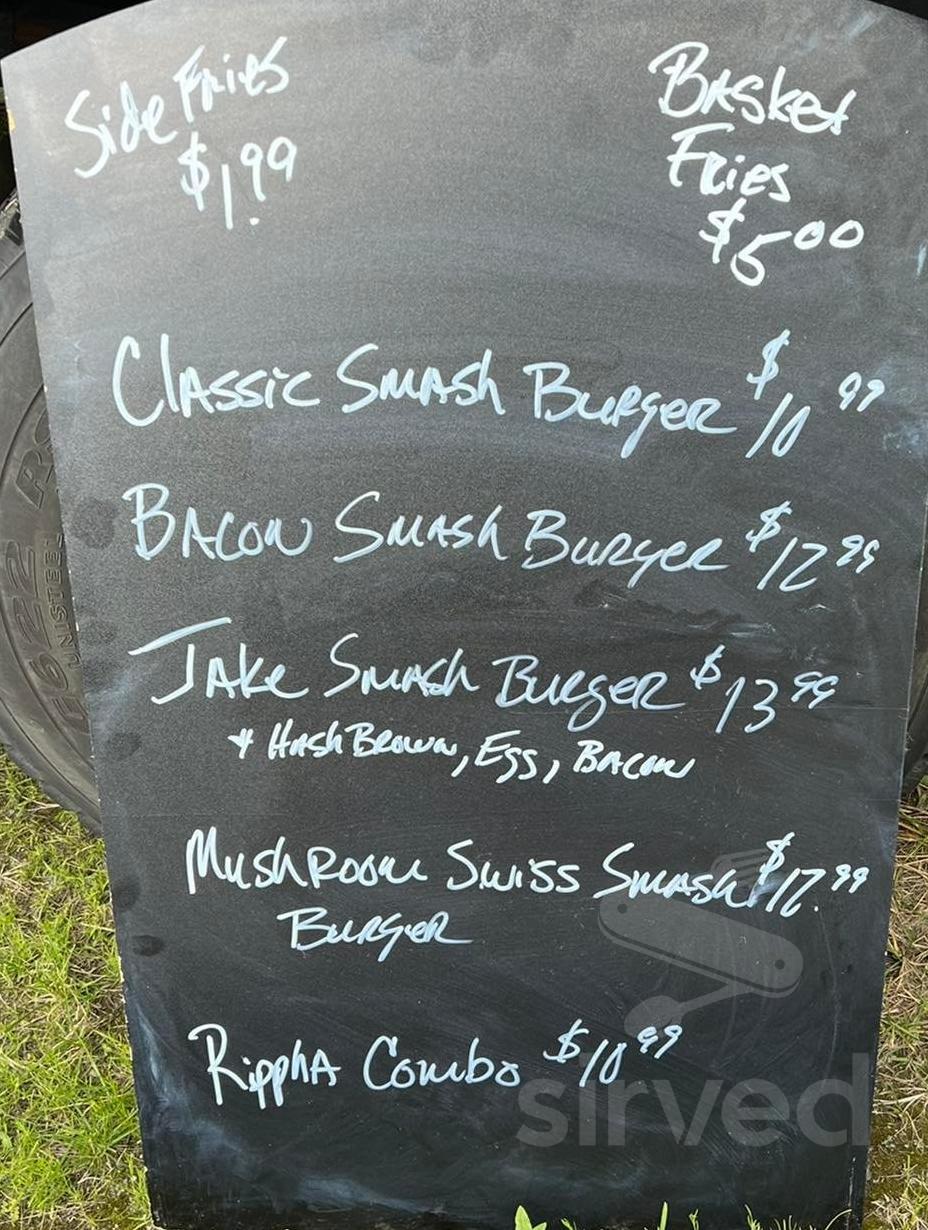 Side Fries
$1.99
Basket
Fries
$5.00
Classic Smash Burger $10.99
Bacon Smash Burger $12.99
Jake Smash Burger $13.99
* Hash Brown, Egg, Bacon
Mushroom Swiss Smash $12.99
Burger
Rippha Combo $10.99
sirved
UNISTEEL